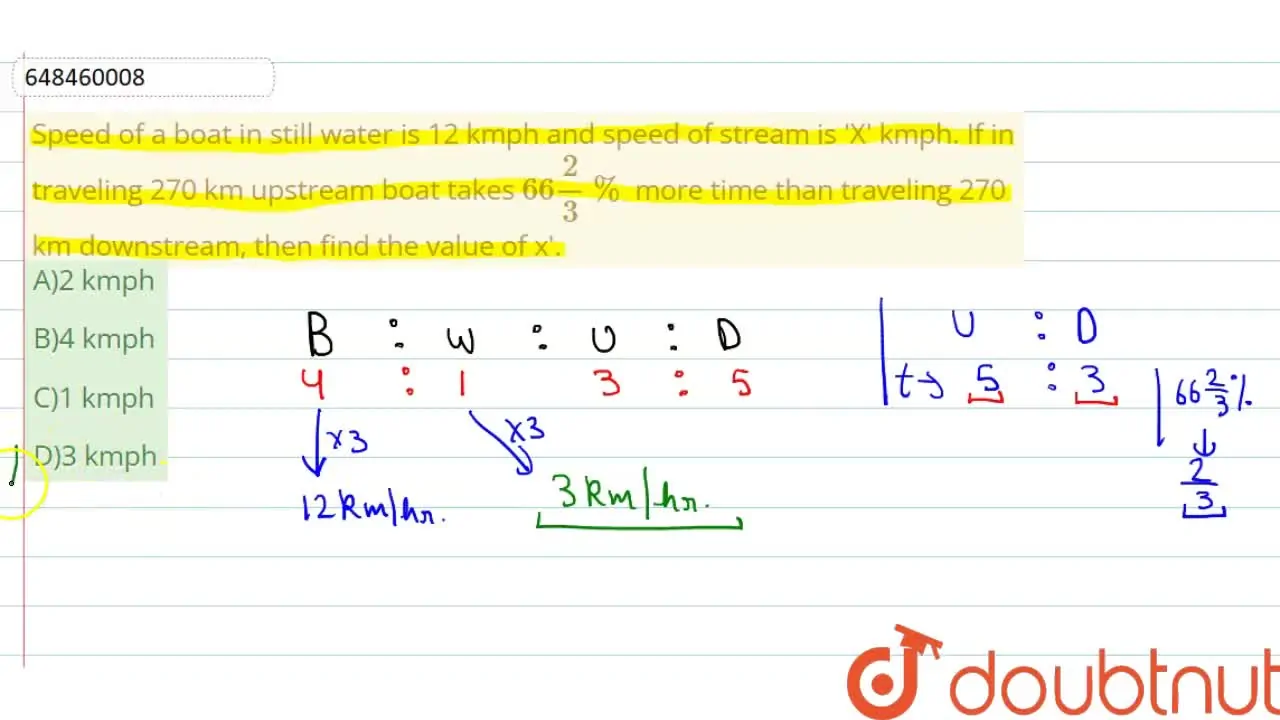 648460008
Speed of a boat in still water is 12 kmph and speed of stream is 'X' kmph. If in
traveling 270 km upstream boat takes 66 2/3 % more time than traveling 270
km downstream, then find the value of x'.
A)2 kmph
B)4 kmph
C)1 kmph
D)3 kmph
B : W : U : D
4 : 1 3 : 5
×3 ×3
12 km/hr. 3 km/hr.
U : D
t→ 5 : 3
66 2/3 %
2/3
doubtnut